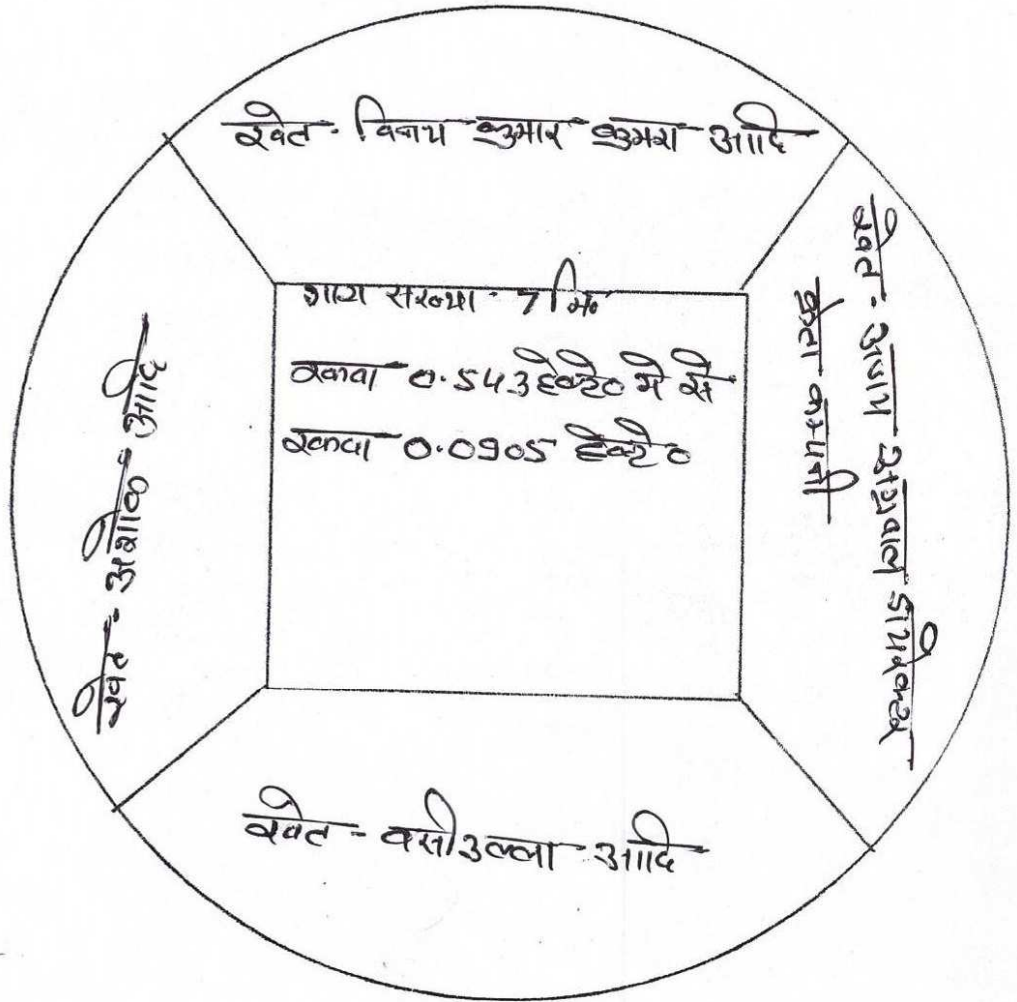 खेत - विजय कुमार कुमरा आदि
गाटा संख्या - 7 मि०
रकवा 0.543 हेक्टे० मे से
रकवा 0.0905 हेक्टे०
खेत - अशोक आदि
खेत - अजय अग्रवाल डायरेक्टर
क्रेता कम्पनी
खेत - वसीउल्ला आदि